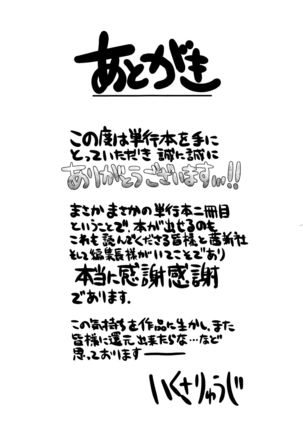 あとがき
この度は単行本を手に
とっていただき 誠に誠に
ありがとうございます…!!
まさかまさかの単行本二冊目
ということで、本が出せるのも
これも読んでくださる皆様と茜新社
そして編集長様がいてことであり
本当に感謝感謝
であります.
この気持ちを作品に生かし、また
皆様に還元出来たらな…など
思っております――
いくさりゅうじ